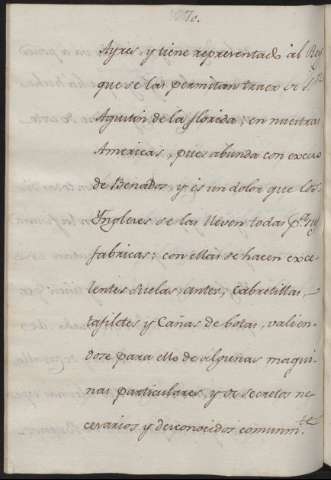 Ayres, y tiene representado al Rey
que se las permitan traer de Sn.
Agustin de la florida; en nuestras
Americas, pues abunda con exceso
de Benados, y es un dolor que los
Ingleses se las lleven todas pa. sus
fabricas; con ellas se hacen exce-
lentes suelas, antes, Cabretillas,
tafiletes y Cañas de botas, valien-
dose para ello de algunas maqui-
nas particulares, y de secretos ne-
cesarios y desconocidos comunmte.